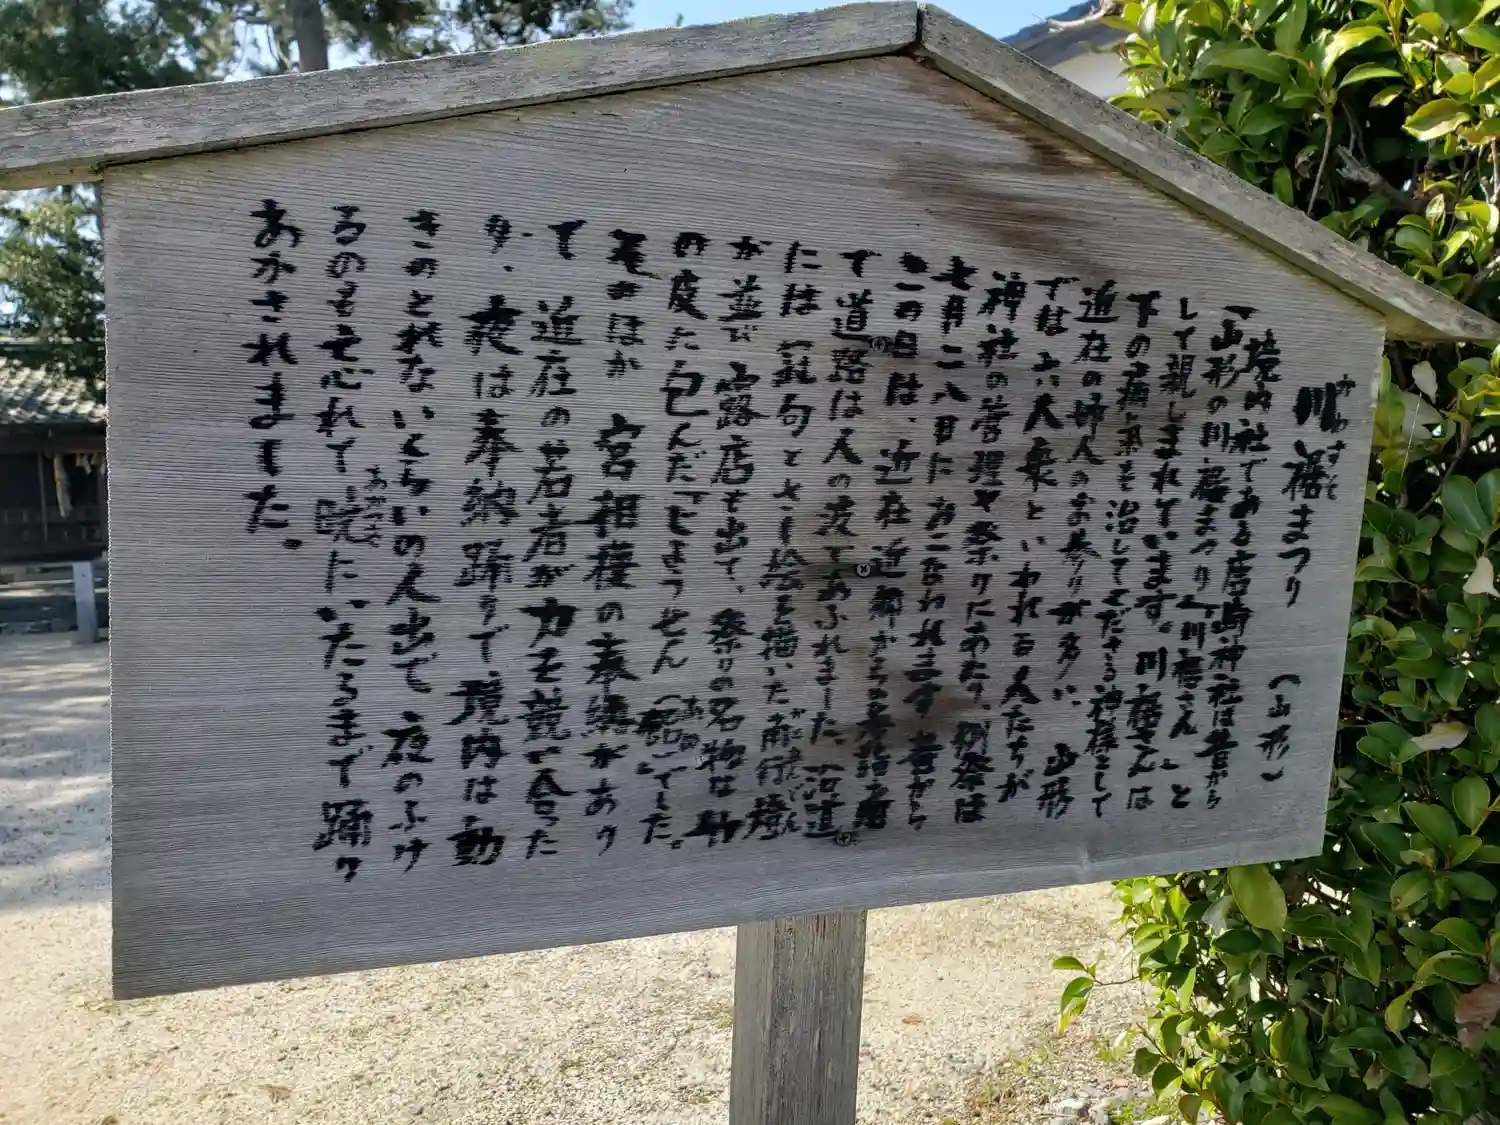 川裾まつり (山形)
かわすそ
境内社である唐崎神社は昔から
「山形の川裾まつり」「川裾さん」と
して親しまれています。川裾さんは
下の病気を治してくださる神様として
近在の婦人のお参りが多い。山形
では六人衆といわれる人たちが
神社の管理や祭りにあたり、例祭は
七月二八日におこなわれます。昔から
この日は、近在近郷からの参詣者
で道路は人の波であふれました。沿道
には「雑句とさし絵を描いた献行燈
が並び露店も出て、祭りの名物は竹
の皮に包んだ「じょうせん(飴)でした。
あめ
そのほか 宮相撲の奉納があり
て 近在の若者が力を競い合った
夕、夜は奉納踊りで境内は動
きのとれないくらいの人出で夜のふけ
るのも忘れて暁にいたるまで踊り
あかつき
あかされました。